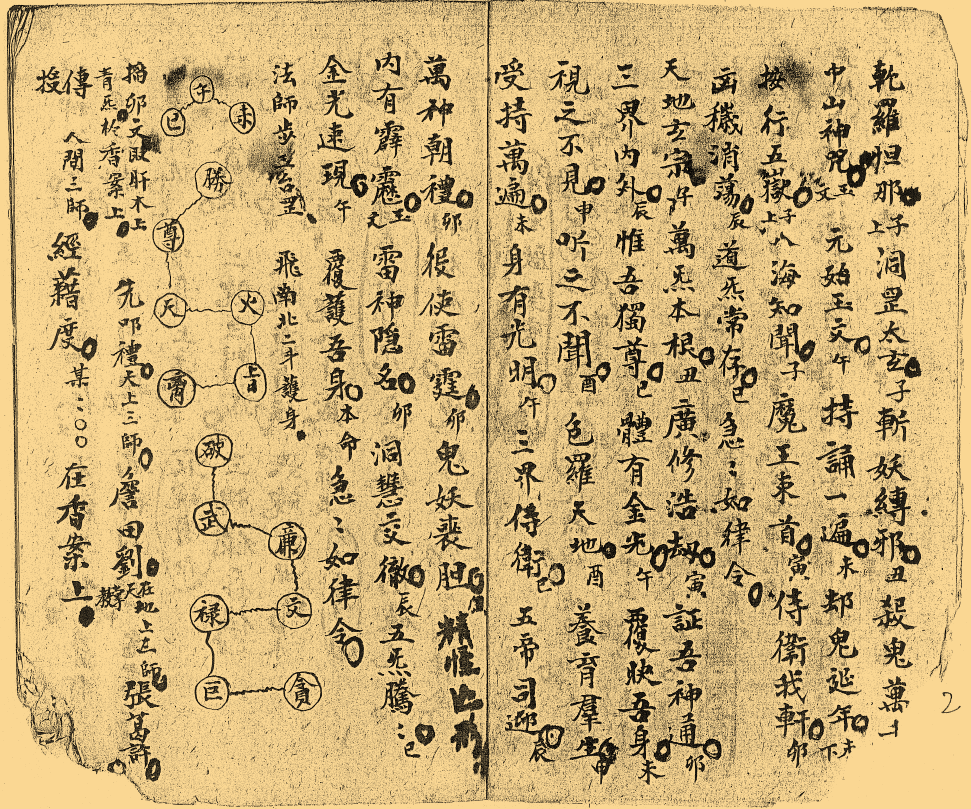 乹羅怛那子上洞罡太玄子斬妖縛邪丑殺鬼萬千
中山神咒玉文元始玉文午持誦一遍未却鬼延年未下
按行五嶽子上八海知聞子魔王束首寅侍衛我軒卯
凶穢消蕩辰道炁常存巳急〻如律令
天地玄宗午萬炁本根丑廣修浩劫寅証吾神通卯
三界内外辰惟吾獨尊巳體有金光午覆映吾身未
視之不見申听之不聞酉色羅天地酉養育羣生申
受持萬遍未身有光明午三界侍衛巳五帝司迎辰
萬神朝禮卯役使雷霆卯鬼妖喪胆精怪亡形
内有霹靂玉文雷神隐名卯洞慧交徹辰五炁騰〻巳
金光速現午覆護吾身本命急〻如律令
法師步罡飛南北二斗護身
午
巳
未
勝
尊
天
火
宵
破
武
廉
文
禄
巨
貪
搯卯文取肝木上青炁於香案上先叩禮天上三師詹田劉在地上三師張葛許
傳授人間三師經籍度某〻〇〇在香案上
2